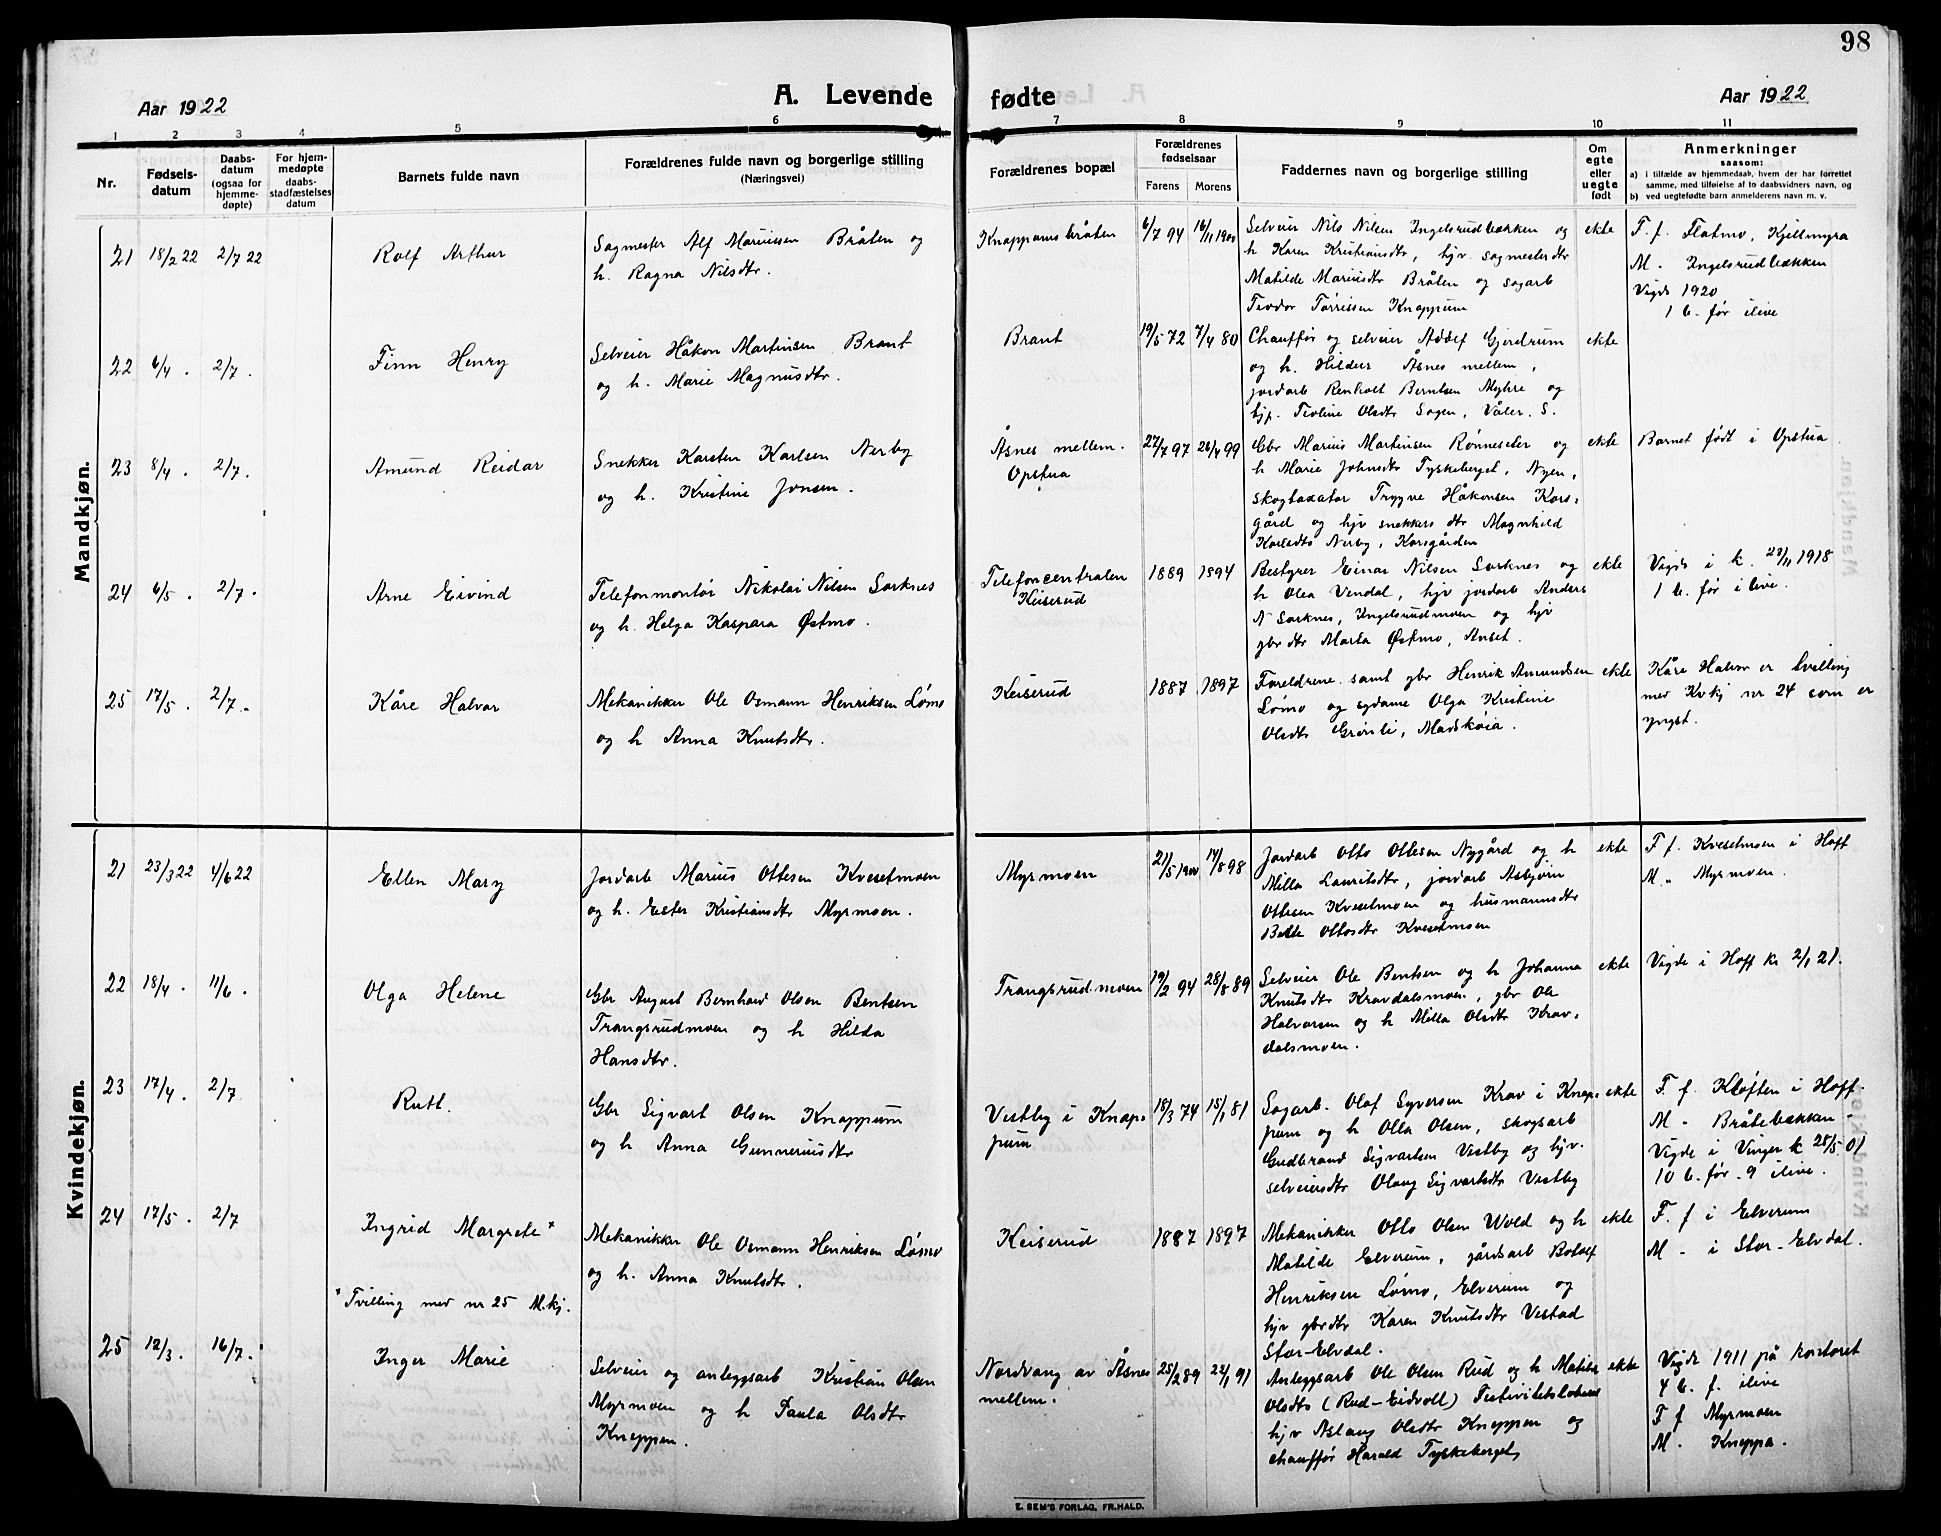 98
Aar 1922
A. Levende fødte
Aar 1922
1 2 3 4 5 6 7 8 9 10 11
Nr.
Fødsels-
datum
Daabs-
datum
(ogsaa for
hjemme-
døpte)
For hjem-
medøpte
daabs-
stadfæstelses
datum
Barnets fulde navn
Forældrenes fulde navn og borgerlige stilling
(Næringsvei)
Forældrenes bopæl
Forældrenes
fødselsaar
Farens Morens
Faddernes navn og borgerlige stilling
Om
egte
eller
uegte
født
Anmerkninger
saasom:
a) i tilfælde av hjemmedaab, hvem der har forrettet
samme, med tilføielse af to daabsvidners navn, og
b) ved uegtefødte barn anmelderens navn m. v.
Mandkjøn.
21 18/2 22 2/7 22
Rolf Arthur
Sagmester Alf Mariussen Bråten og
h. Ragna Nilsdtr.
Knappumsbråten
6/7 94 16/11 1900
Selveier Nils Nilsen Ingelsrudbækken og
h Karen Kristiansdtr, hjv. sagmesterdtr
Matilde Mariusdtr Bråten og sagarb
Teodor Torvisen Knappum
ekte
F. f. Flatmo, Kjellmyra
M. - Ingelsrudbækken
Vigde 1920
1 b. før ilive
22 6/4 . 2/7 .
Finn Henry
Selveier Håkon Martinsen Brant
og h. Marie Magnusdtr.
Brant
19/5 72 7/4 80
Chauffør og selveier Adolf Gjerdrum
og h. Hildur Åsnes mellem,
jordarb Renholt Berntsen Myhre og
hjp. Teoline Olsdtr Sagen, Våler. S.
ekte
23 8/4 . 2/7 .
Amund Reidar
Snekker Karsten Karlsen Nerby
og h. Kristine Jonsen.
Åsnes mellem.
Opstua
27/7 97 26/4 99
Gbr Marius Martinsen Rønneseter og
h Marie Johnsdtr Tyskeberget, Nyen,
skogtaxator Trygve Håkonsen Kors-
gård og hjv snekkers dtr Magnhild
Karlsdtr Nerby, Korsgården
ekte
Barnet født i Opstua
24 6/5 . 2/7 .
Arne Eivind
Telefonmontør Nikolai Nilsen Sorknes
og h. Helga Kaspara Østmo.
Telefoncentralen
Keiserud
1889 1894
Bestyrer Einar Nilsen Sorknes og
h Olea Vendal, hjv jordarb Anders
N Sorknes, Ingelsrudmoen og hjv
gbr dtr Marta Østmo, Arset.
ekte
Vigde i k. 23/11 1918
1 b. før i live.
25 17/5 . 2/7 .
Kåre Halvar
Mekanikker Ole Osmann Henriksen Lømo
og h Anna Knutsdtr.
Keiserud
1887 1897
Foreldrene samt gbr Henrik Amundsen
Lømo og sydame Olga Kristine
Olsdtr Grønli, Madskoia.
ekte
Kåre Halvar er tvilling
med Kvkj nr 24 som er
yngst.
Kvindekjøn.
21 23/3 22 4/6 22
Ellen Mary
Jordarb Marius Ottesen Kvesetmoen
og h. Ester Kristiansdtr Myrmoen.
Myrmoen
21/5 1900 14/8 98
Jordarb Otto Ottesen Nygård og h
Milla Lauritsdtr, jordarb Asbjørn
Ottesen Kvesetmoen og husmannsdtr
Belle Ottosdtr Kvesetmoen
ekte
F f. Kvesetmoen i Hoff
M. „ Myrmoen.
22 18/4 . 11/6 .
Olga Helene
Gbr August Bernhard Olsen Bentsen
Trangsrudmoen og h Hilda
Hansdtr.
Trangsrudmoen
19/2 94 28/8 89
Selveier Ole Bentsen og h Johanna
Knutsdtr Kravdalsmoen, gbr Ole
Halvorsen og h Milla Olsdtr Krav-
dalsmoen.
ekte
Vigde i Hoff k. 2/1 21.
23 17/4 2/7
Rutt.
Gbr Sigvart Olsen Knappum
og h Anna Gunneriusdtr
Vestby i Knap-
pum
18/3 74 15/1 81
Sagarb. Olaf Syversen Krav i Knap-
pum og h Olla Olsen, skogsarb
Gudbrand Sigvartsen Vestby og hjv.
selveiersdtr Olaug Sigvartsdtr Vestby
ekte
F. f. Kløften i Hoff
M - Bråtebækken
Vigde i Vinger k 28/5 01
10 b. før - 9 ilive.
24 17/5 . 2/7
Ingrid Margrete x
x Tvilling med nr 25 M.kj.
Mekanikker Ole Osmann Henriksen Lømo
og h. Anna Knutsdtr.
Keiserud
1887 1897
Mekanikker Otto Olsen Wold og h
Matilde Elverum, gårdsarb Botolf
Henriksen Lømo, Elverum og
hjv gbrdtr Karen Knutsdtr Vestad
Stor-Elvdal.
ekte
F. f i Elverum
M - i Stor-Elvdal.
25 12/3 . 16/7 .
Inger Marie
Selveier og anleggsarb Kristian Olsen
Myrmoen og h Paula Olsdtr
Kneppen.
Nordvang av Åsnes
mellem.
25/2 89 22/1 91
Anleggsarb Ole Olsen Rud og h Matilde
Olsdtr (Rud-Eidvoll) Festivitetslokalet
hjv Aslaug Olsdtr Kneppen og
chauffør Harald Tyskeberget,
ekte
Vigde 1911 på kontoret
4 b. f. ilive
F f Myrmoen
M. Kneppa.
E. SEM'S FORLAG, FR.HALD.